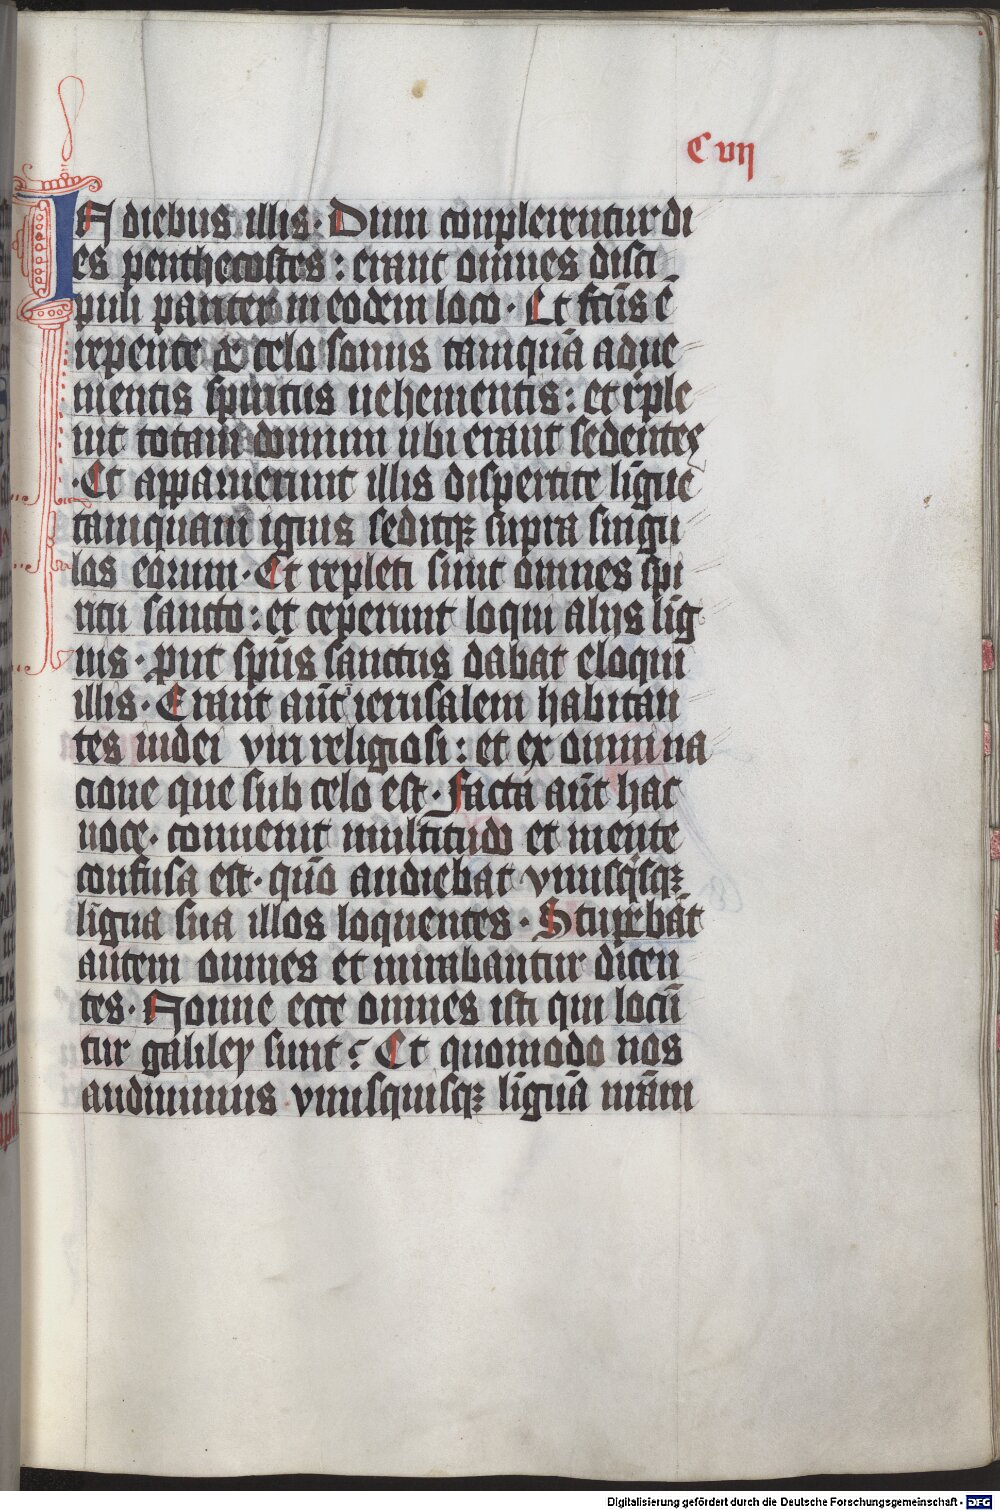 C vij
IN diebus illis. Dum complerentur di
es penthecostes: erant om̄nes disci
puli pariter in eodem loco. Et fc̄us ē
repente de celo sonus tamquā adue
nientis spiritus uehementis: et r̄ple
uit totam domum ubi erant sedentes
.Et apparuerunt illis dispertite līgue
tamquam ignis seditqꝫ supra singu
los eorum. Et repleti sunt omnes spi
ritu sancto: et ceperunt loqui alijs līg
uis. put sp̄us sanctus dabat eloqui
illis. Erant aūt ierusalem habitan
tes iudei viri religiosi: et ex omni na
cione que sub celo est. Facta aūt hac
uoce. conuenit multitudo et mente
confusa est. qūo audiebat vnusq̄sqꝫ
līgua sua illos loquentes. Stupebāt
autem omnes et mirabantur dicen
tes. Nonne ecce omnes isti qui locū
tur galiley sunt? Et quomodo nos
audiuimus vnusquisqꝫ līguā nr̄am
Digitalisierung gefördert durch die Deutsche Forschungsgemeinschaft - DFG